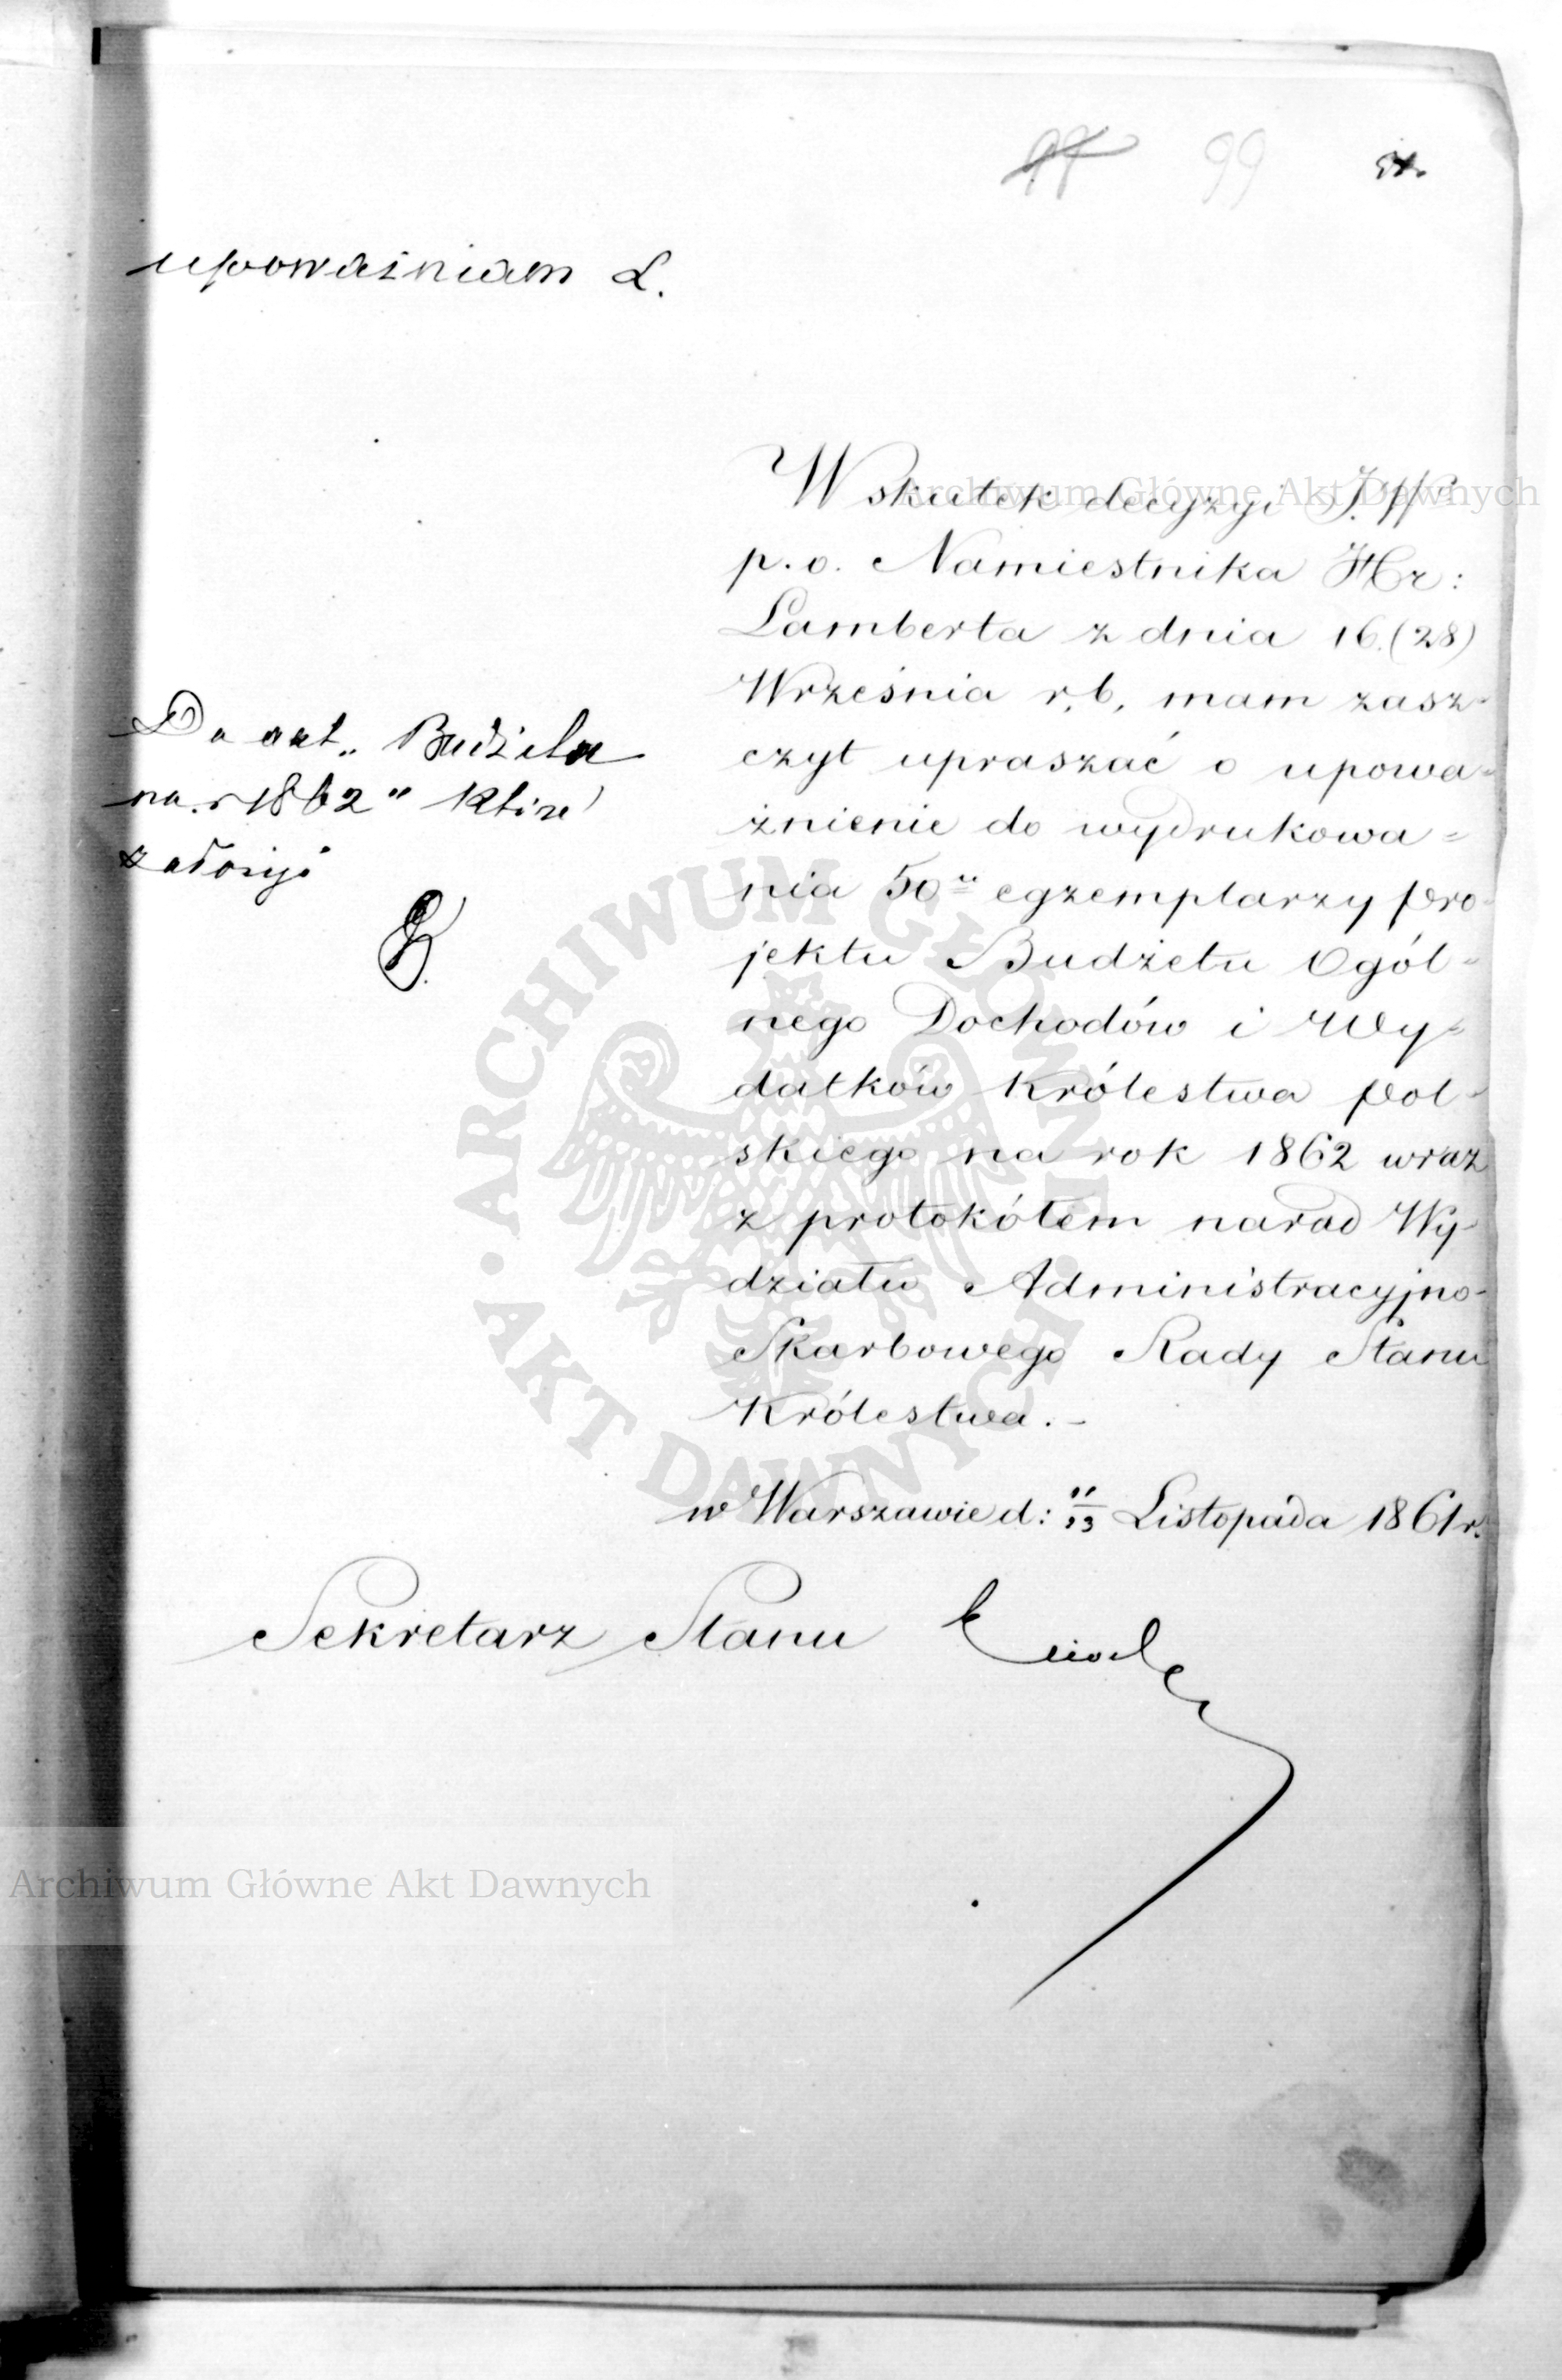 99
upoważniam L.
Wskutek decyzyi J. W.
p. o. Namiestnika Hr:
Lamberta z dnia 16. (28)
Września r. b. mam zasz-
czyt upraszać o upowa=
żnienie do wydrukowa=
nia 50 egzemplarzy Pro-
jektu Budżetu Ogól=
nego Dochodów i Wy=
datków Królestwa Pol-
skiego na rok 1862 wraz
z protokółem narad Wy-
działu Administracyjno-
Skarbowego Rady Stanu
Królestwa.-
Do akt „Budżetu
na r 1862" które
założyć
w Warszawie d: 11/23 Listopada 1861 r.
Sekretarz Stanu
Archiwum Główne Akt Dawnych
ARCHIWUM GŁÓWNE • AKT DAWNYCH •
Archiwum Główne Akt Dawnych